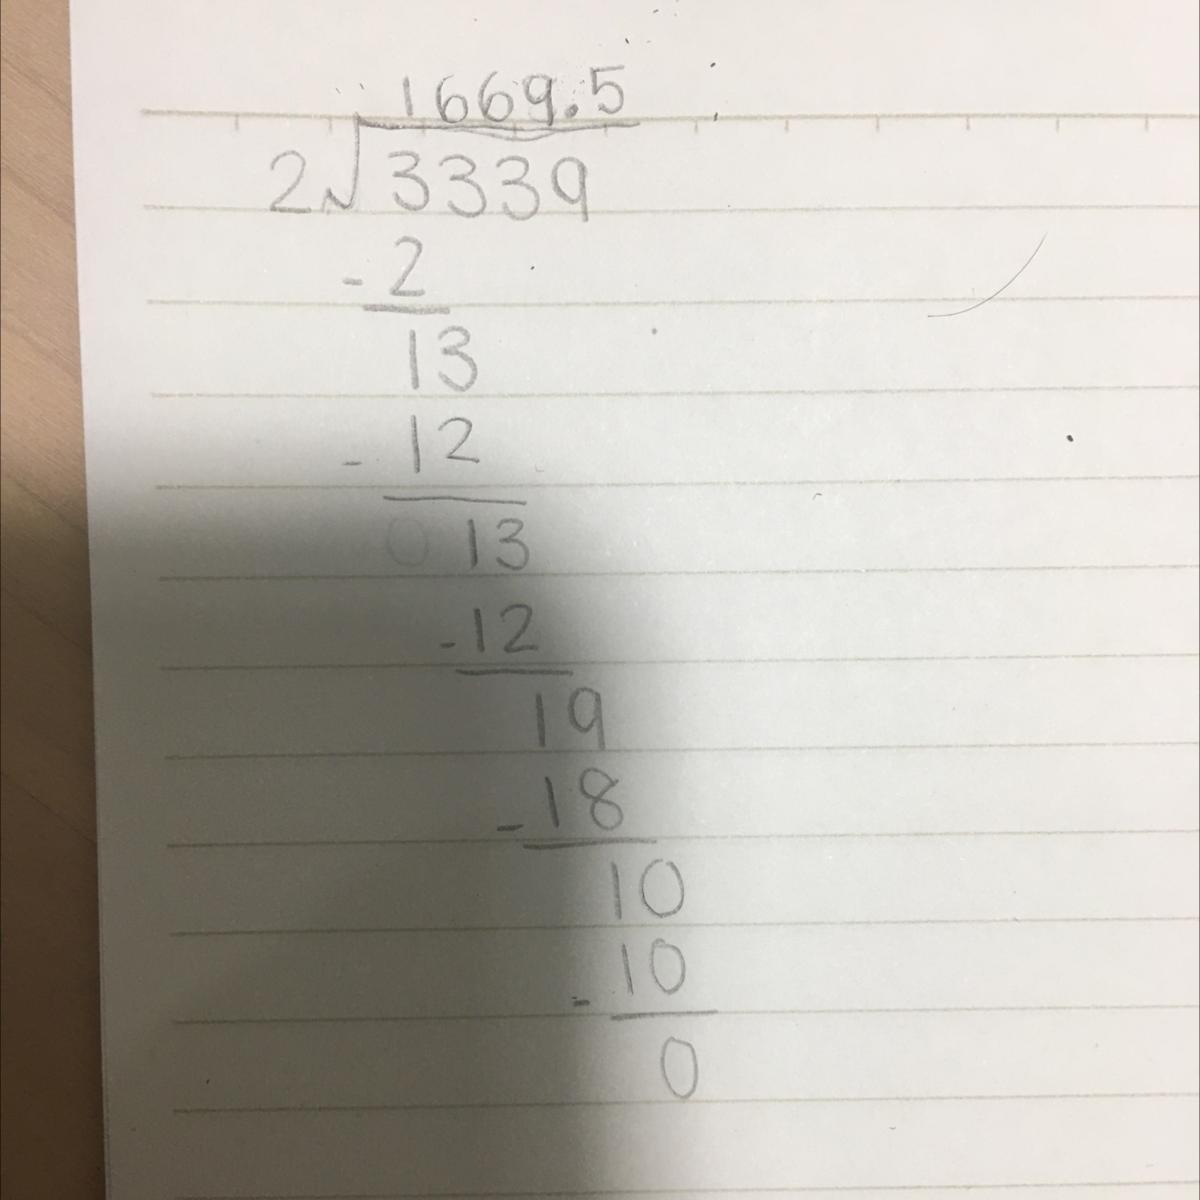 1669.5
2√3339
-2
13
-12
0 13
-12
19
-18
10
-10
0